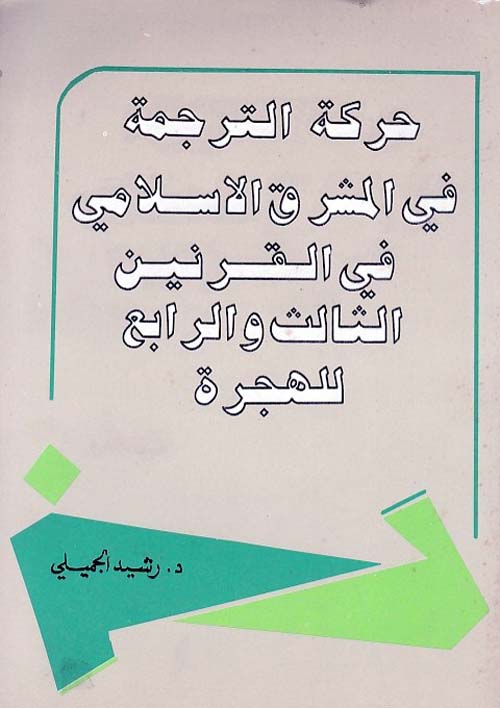 حركة الترجمة
في المشرق الاسلامي
في القرنين
الثالث والرابع
للهجرة
د. رشيد الجميلي